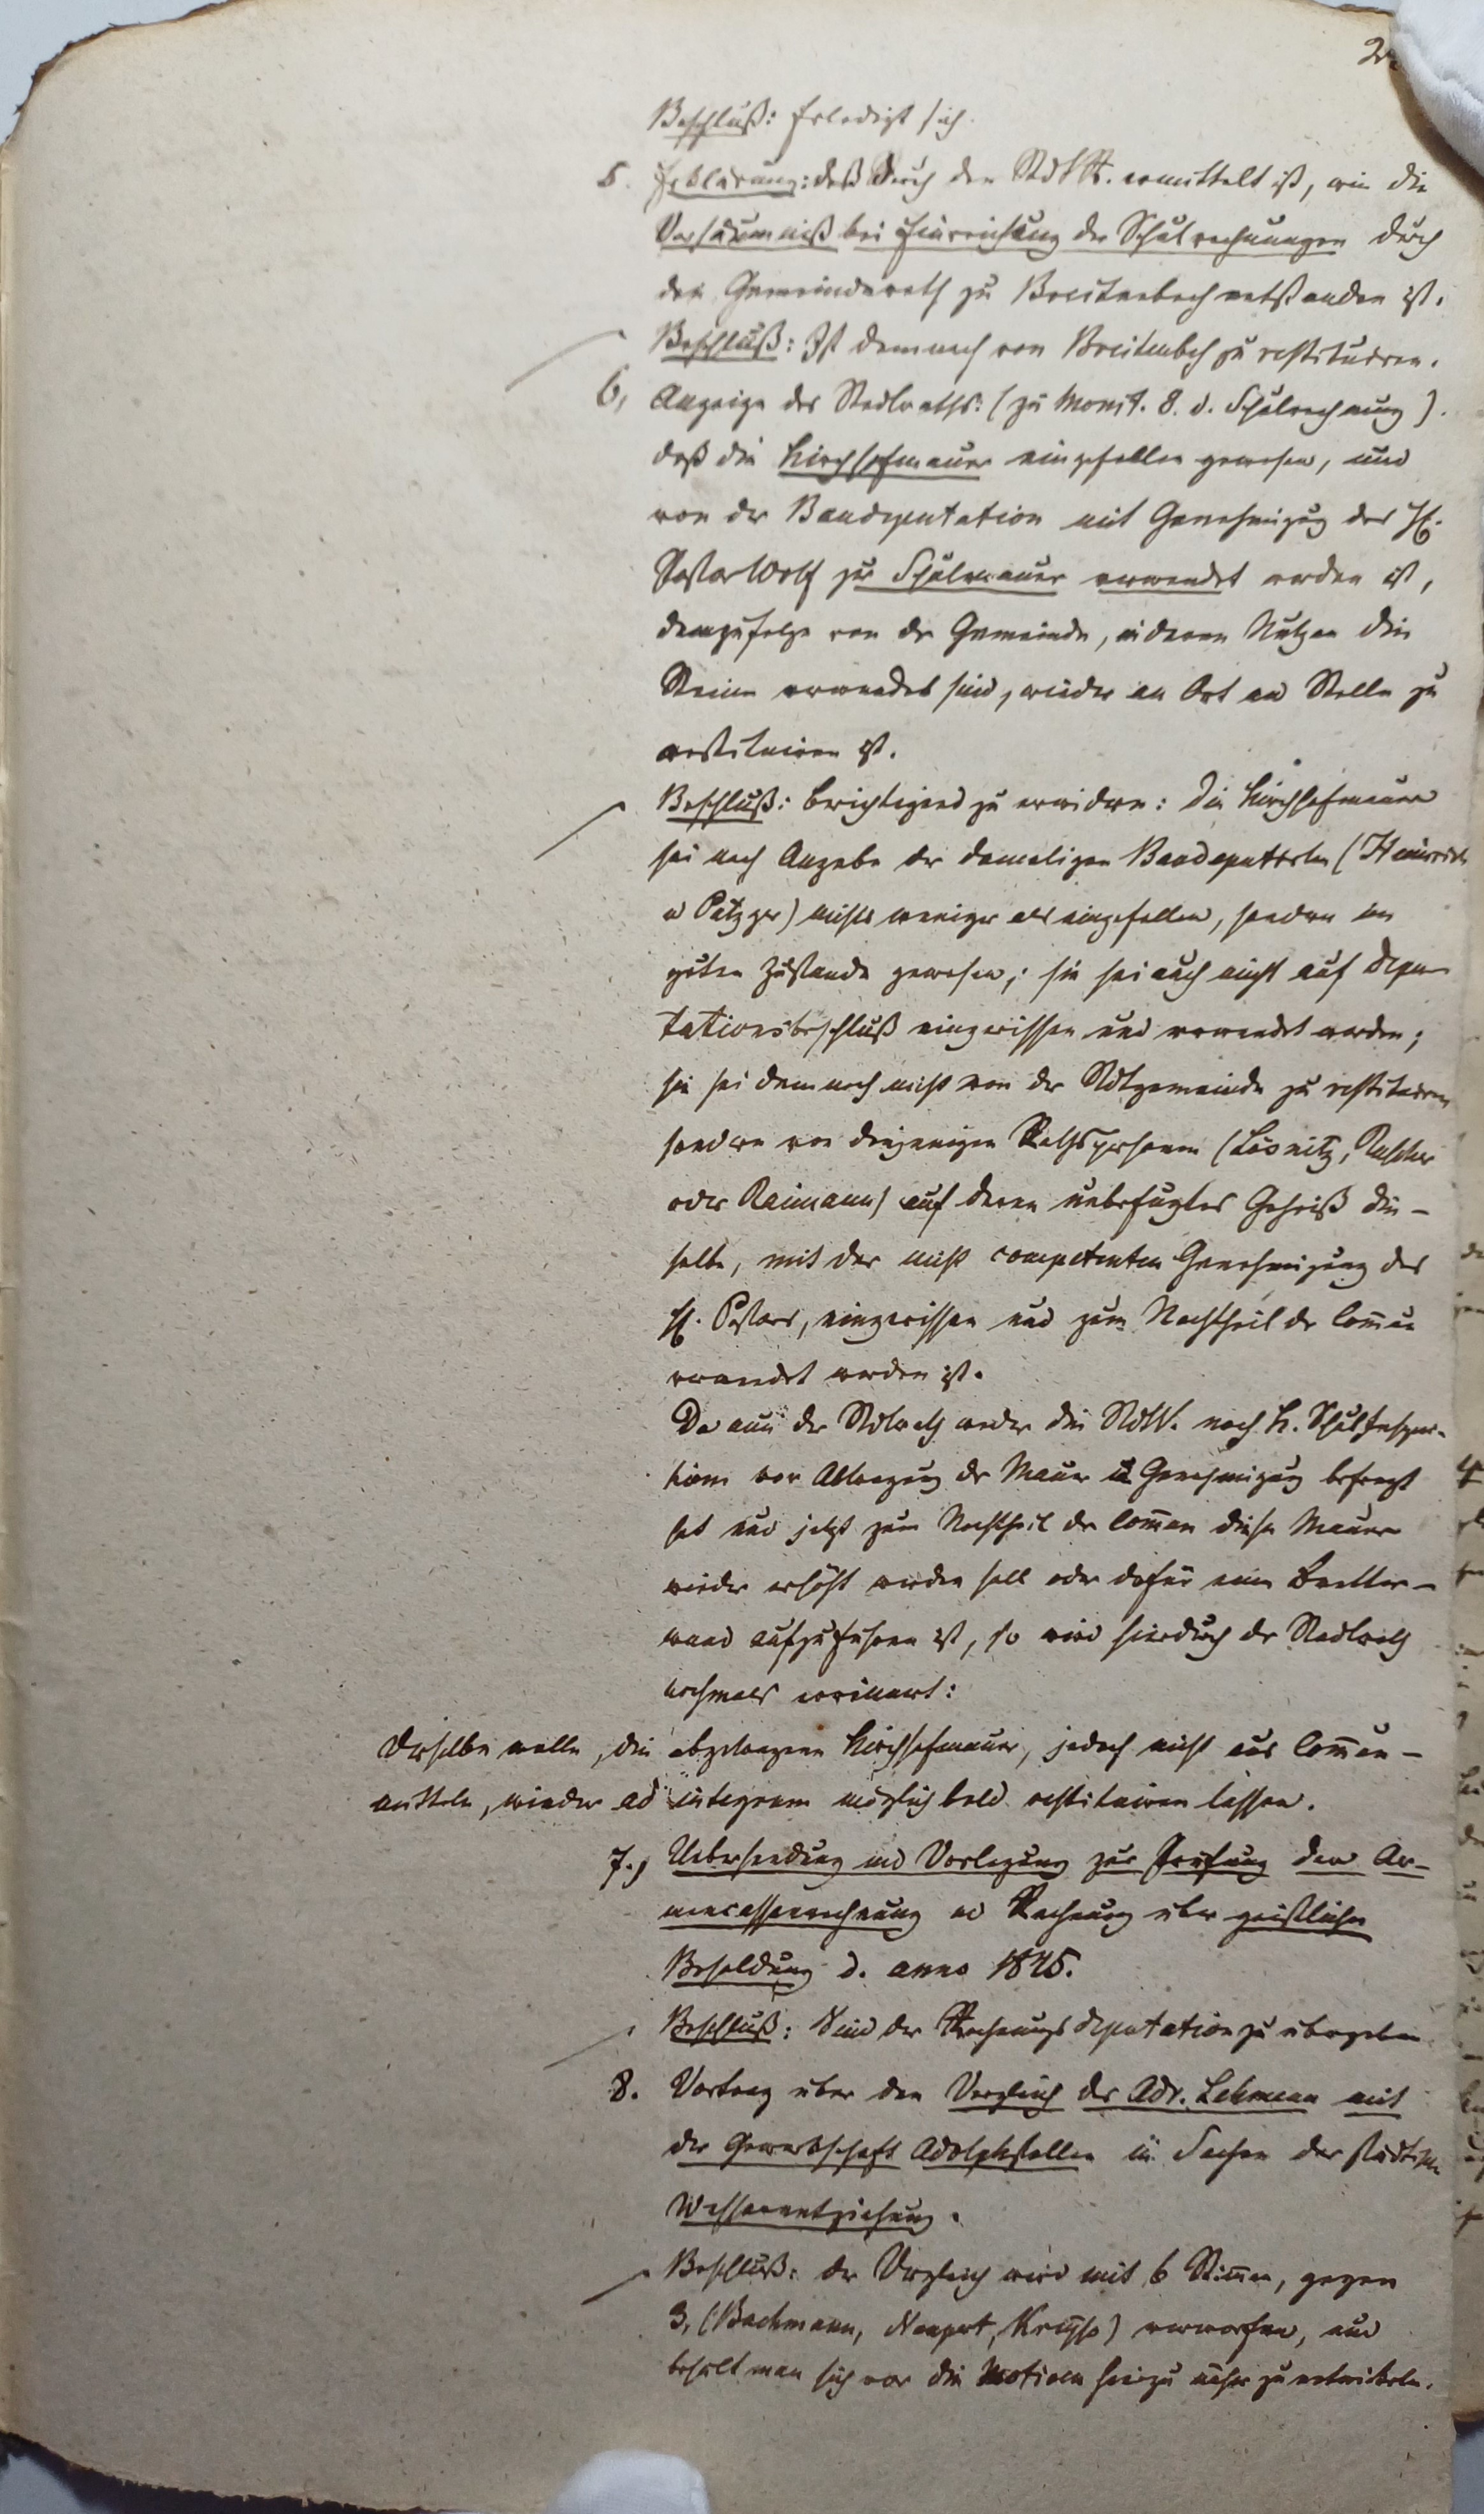 Beschluß: Erledigt sich.
5. Erklärung: daß durch den StdR. ermittelt ist, wie die
Versäumniß bei Einreichung der Schulrechnungen durch
den Gemeinderath zu Breitenbach entstanden ist.
Beschluß: Ist demnach von Breitenbch zu restituiren.
6, Anzeige des Stadtraths: (zu Monit. 8. d. Schulrechnung).
daß die Kirchhofmauer eingefallen gewesen, und
von der Baudeputation mit Genehmigug des H.
Pastor Wolf zur Schulmauer verwendet worden ist,
demzufolge von der Gemeinde, in deren Nutzen die
Steine verwendet sind, wieder an Ort und Stelle zu
restituiren ist.
Beschluß: berichtigend zu erwidern: die Kirchhofmauer
sei nach Angabe der damaligen Baudeputirten (Heinrich
u Petzger) nichts weniger als eingefallen, sondern im
guten Zustande gewesen; sie sei auch nicht auf Depu-
tationsbeschluß eingerissen und verwendet worden;
sie sei demnach nicht von der Stdtgemeinde zu restituiren
sondern von denjenigen Rathspersonen (Lösnitz,
oder Reimann) auf deren unbefugtes Geheiß die-
selbe, mit der nicht competenten Genehmigung des
H. Pastors, eingerissen und zum Nachtheil der Com̄un
verwendet worden ist.
Da nun der Stdtrath weder die StdV. noch K. Schulinspec-
tion vor Abtragug der Mauer u Genehmigug befragt
hat und jetzt zum Nachtheil der Com̄un diese Mauer
wieder erhöht werden soll oder dafür eine Bretter-
wand aufzuführen ist, so wird hierdurch der Stadtrath
nochmals erinnert:
Derselbe wolle, die abgetragene Kirchhofmauer, jedoch nicht aus Com̄un-
mitteln, wieder ad integrum möglichst bald restituiren lassen.
7., Uebersendung und Vorlegung zur Prüfung der Ar-
mencassenrechnung und Rechnung über geistliche
Besoldung d. anno 1845.
Beschluß: Sind der Rechnungsdeputation zu übergeben
8. Vortrag über den Vergleich des Adv. Lehmann mit
der Gewerkschaft Adolphstollen in Sachen der städtischen
Wasserentziehung.
Beschluß: der Vergleich wird mit 6 Stim̄en, gegen
3, (Bachmann, Neupert, Krauße) verworfen, und
behält man sich vor die Motiven hierzu näher zu entwickeln.